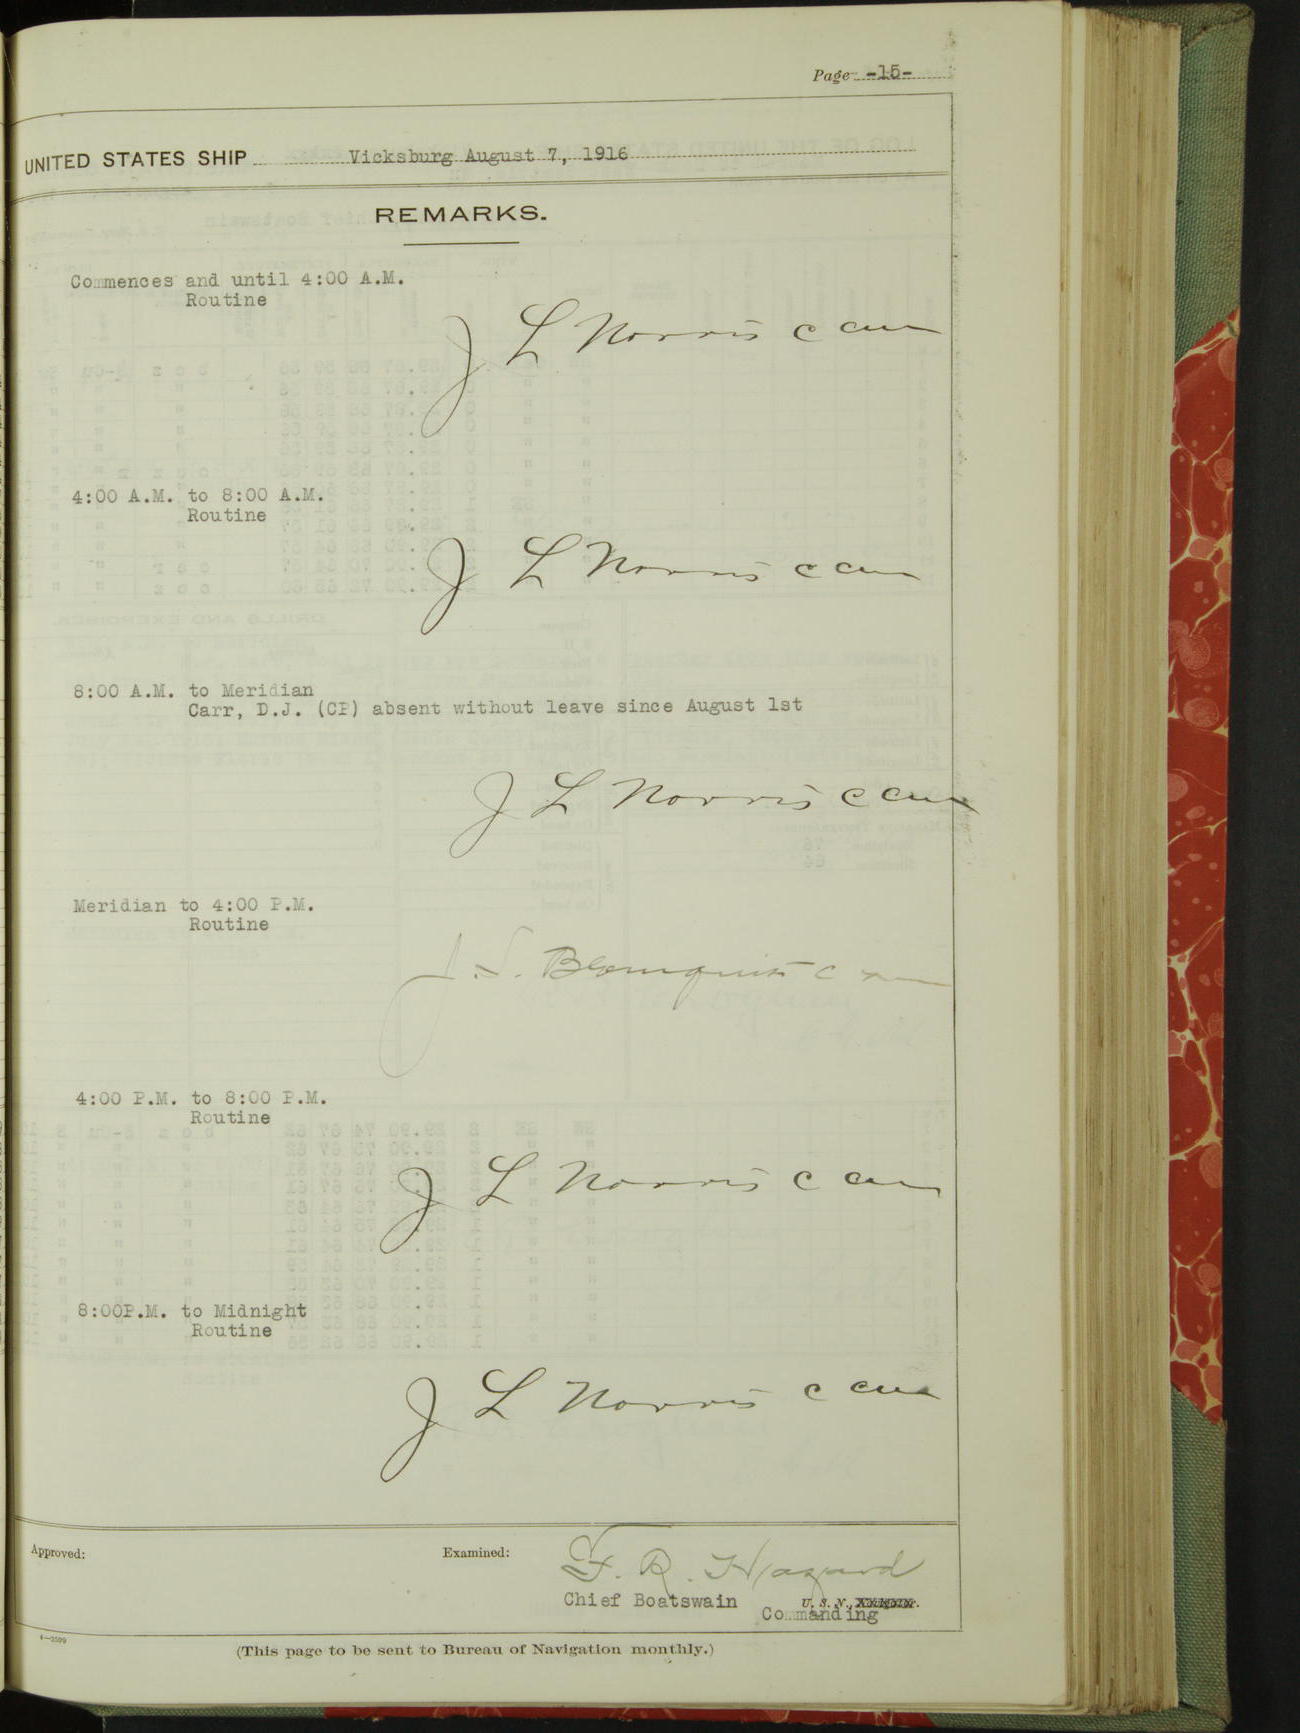 Page -15-
UNITED STATES SHIP Vicksburg August 7, 1916
REMARKS.
Commences and until 4:00 A.M.
Routine
J L Norris C
4:00 A.M. to 8:00 A.M.
Routine
J L Norris C
8:00 A.M. to Meridian
Carr, D.J. (CP) absent without leave since August 1st
J L Norris C
Meridian to 4:00 P.M.
Routine
Blomquist C
4:00 P.M. to 8:00 P.M.
Routine
J L Norris C
8:00P.M. to Midnight
Routine
J L Norris C
Approved:
Examined:
F. R. Hazard
Chief Boatswain U. S. N.,
Commanding
(This page to be sent to Bureau of Navigation monthly.)